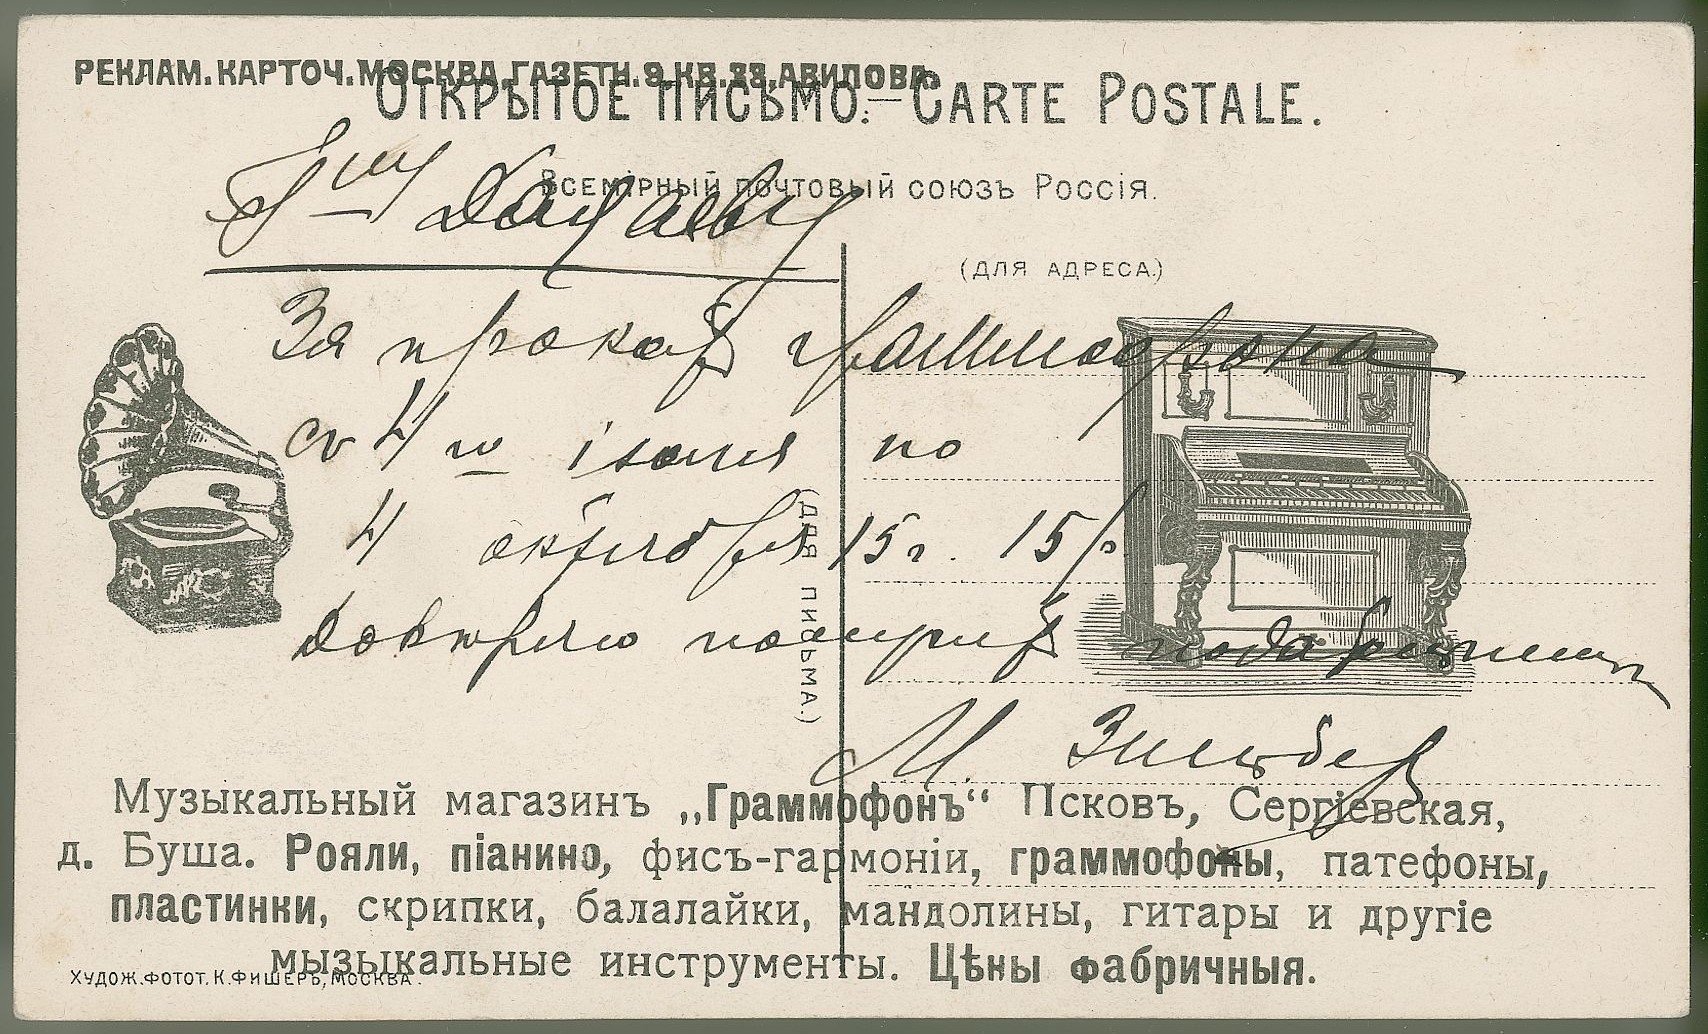 РЕКЛАМ.КАРТОЧ.МОСКВА.ГАЗЕТН.9.КВ.28.АВИЛОВА.
ОТКРЫТОЕ ПИСЬМО.—CARTE POSTALE.
ВСЕМІРНЫЙ ПОЧТОВЫЙ СОЮЗЪ РОССІЯ.
(ДЛЯ АДРЕСА.)
За прокат граммофона
съ 4 го іюля по
4 октября 15 г. 15 р.
Довѣряю получить
М. Зильбер
(ДЛЯ ПИСЬМА.)
Музыкальный магазинъ „Граммофонъ“ Псковъ, Сергіевская,
д. Буша. Рояли, піанино, фисъ-гармоніи, граммофоны, патефоны,
пластинки, скрипки, балалайки, мандолины, гитары и другіе
мызыкальные инструменты. Цѣны фабричныя.
ХУДОЖ.ФОТОТ.К.ФИШЕРЪ,МОСКВА.